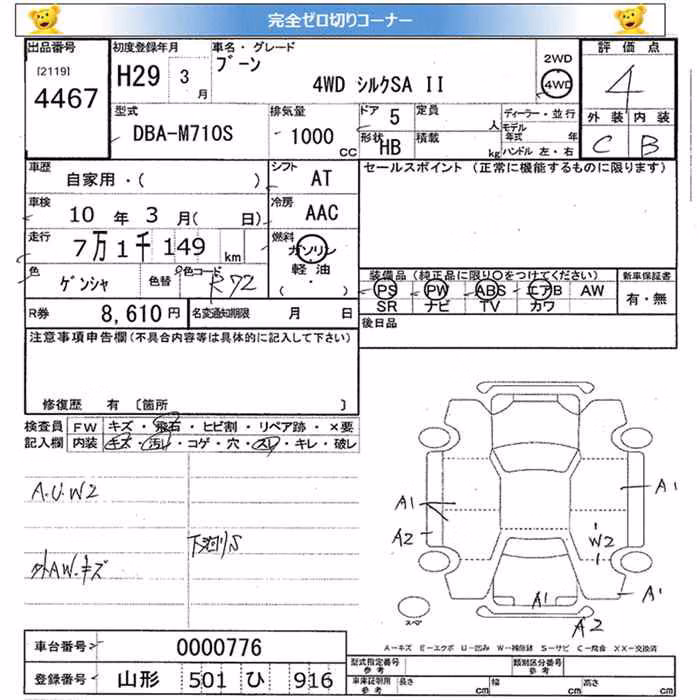 完全ゼロ切りコーナー
出品番号 初度登録年月 車名・グレード 2WD 評価点
[2119] 4467 H29 3月 ブーン 4WD シルクSA II 4WD 4
型式 排気量 ドア 5 定員 人 ディーラー・並行 外装 内装
DBA-M710S 1000 CC 形状 HB 積載 kg モデル年式 年 ハンドル 左・右 C B
車歴 自家用・( ) シフト AT セールスポイント (正常に機能するものに限ります)
車検 10年 3月( 日) 冷房 AAC
走行 7万1千149 km 燃料 ガソリン 軽油 (・)
色 ゲンシャ 色替 色コード R72
装備品 (純正品に限り○をつけてください) 新車保証書
PS PW ABS エアB AW 有・無
SR ナビ TV カワ
R券 8,610円 名変通知期限 月 日 後日品
注意事項申告欄(不具合内容等は具体的に記入して下さい)
修復歴 有 〔箇所 〕
検査員 FW キズ・飛石・ヒビ割・リペア跡・×要
記入欄 内装 キズ・汚れ・コゲ・穴・スレ・キレ・破レ
A.U.W2
下回りS
外AW.キズ
A1 A1
A2 W2
A1
A1
スペ A2
A=キズ E=エクボ U=凹み W=補修跡 S=サビ C=腐食 XX=交換済
車台番号 0000776
登録番号 山形 501 ひ 916
型式指定番号 参考 類別区分番号 参考
車庫証明用 参考 長さ cm 幅 cm 高さ cm